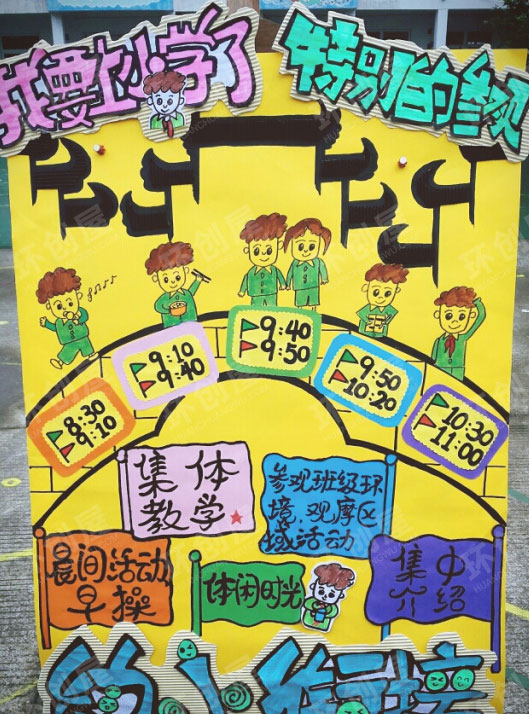 我要上小学了
特别的参观
8:30
9:10
9:10
9:40
9:40
9:50
9:50
10:20
10:30
11:00
集体
教学
参观班级环
境、观摩区
域活动
晨间活动
早操
休闲时光
集中
介绍
幼小
环创屋